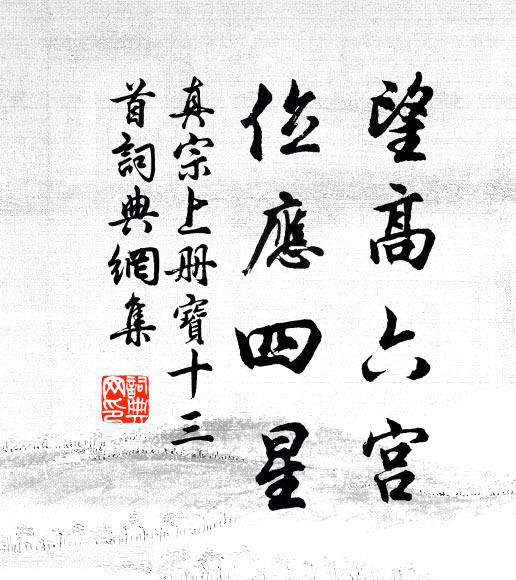 望高六宫
位應四星
真宗上册寶十三
首詞典網集
詞典
网印